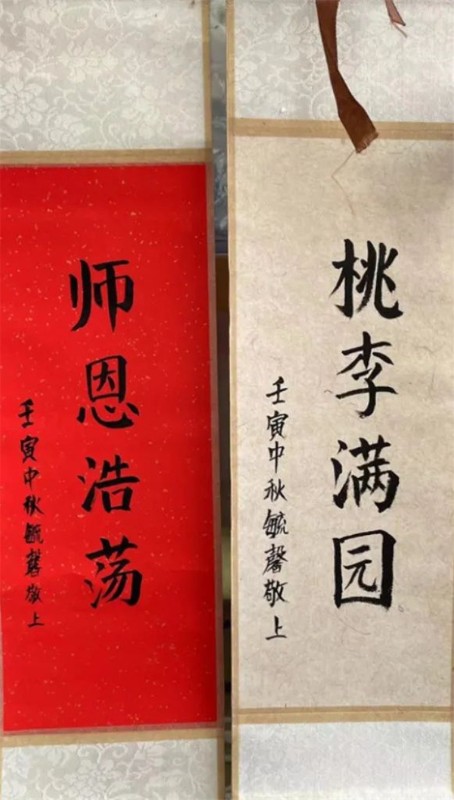 师恩浩荡
壬寅中秋毓馨敬上
桃李满园
壬寅中秋毓馨敬上